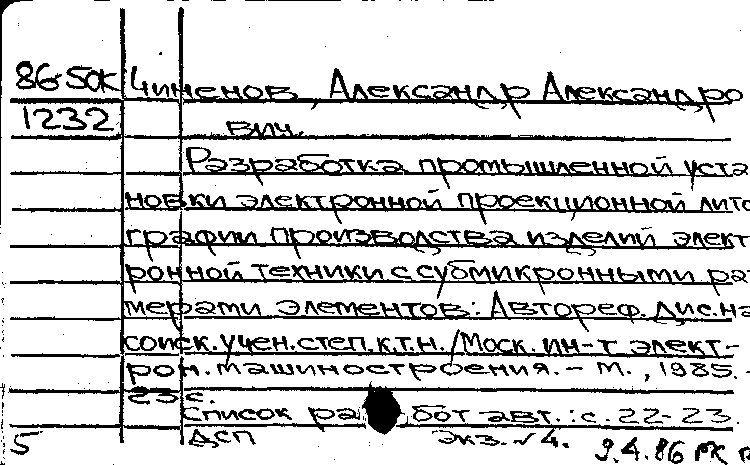 86-50К Чименов, Александр Александро
1232 вич.
Разработка промышленной уста
новки электронной проекционной лито
графии производства изделий элект
ронной техники с субмикронными раз
мерами элементов: Автореф. Дис. на
соиск. учен. степ. к.т.н. /Моск. ин-т элект-
рон. машиностроения. - М., 1985. -
23 с.
Список работ авт.: с. 22-23.
5 ДСП экз. √4. 9.4.86